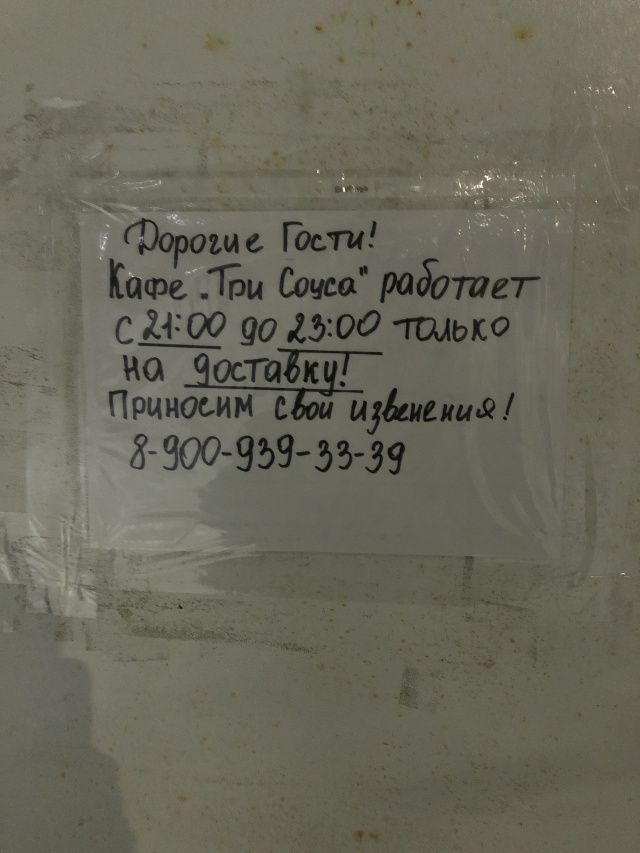 Дорогие Гости!
Кафе „Три Соуса" работает
с 21:00 до 23:00 только
на доставку!
Приносим свои извенения!
8-900-939-33-39